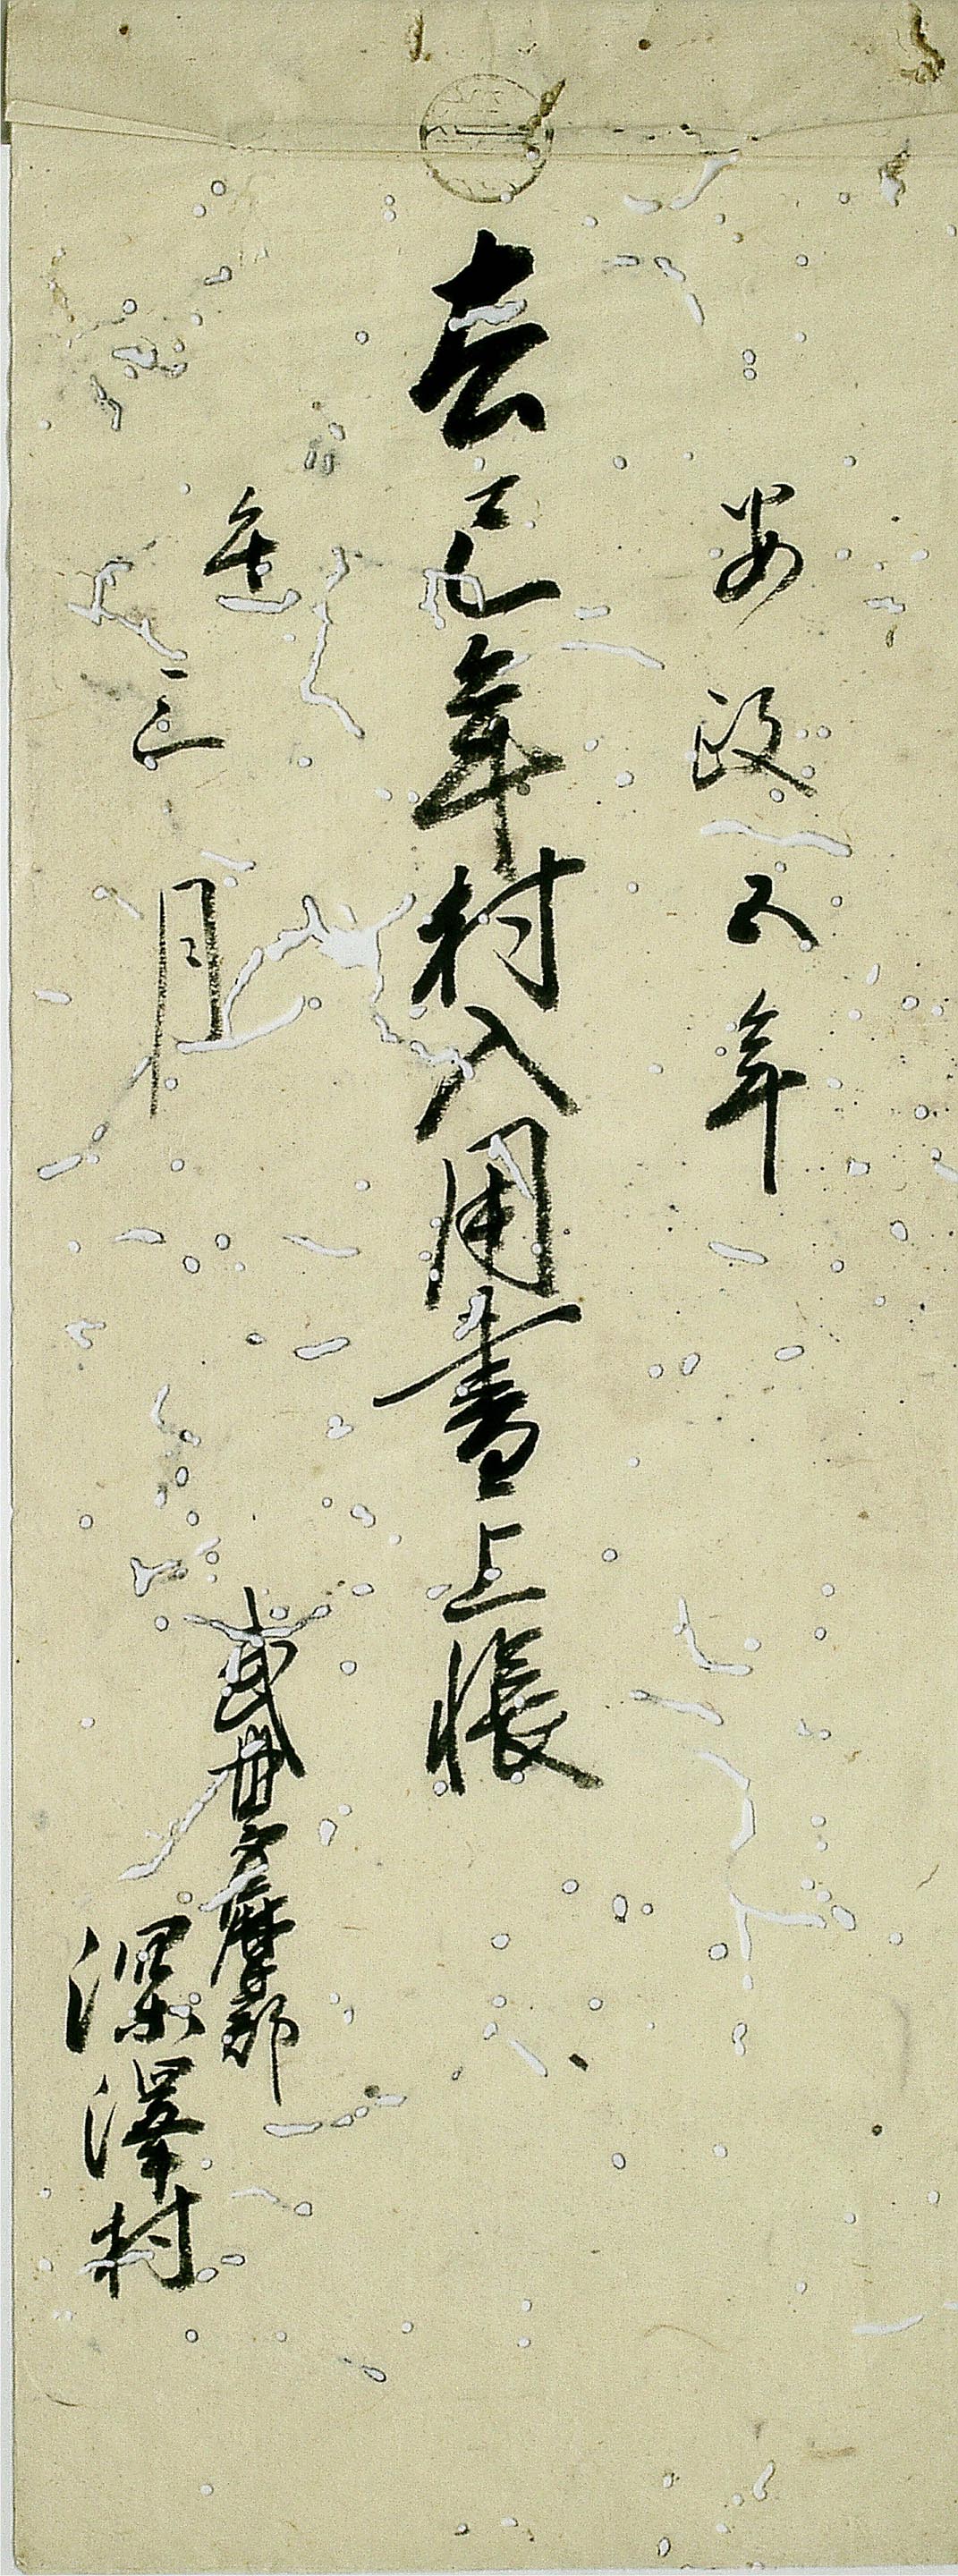 安政五年
去巳年村入用書上帳
午三月
武州多摩郡
深澤村